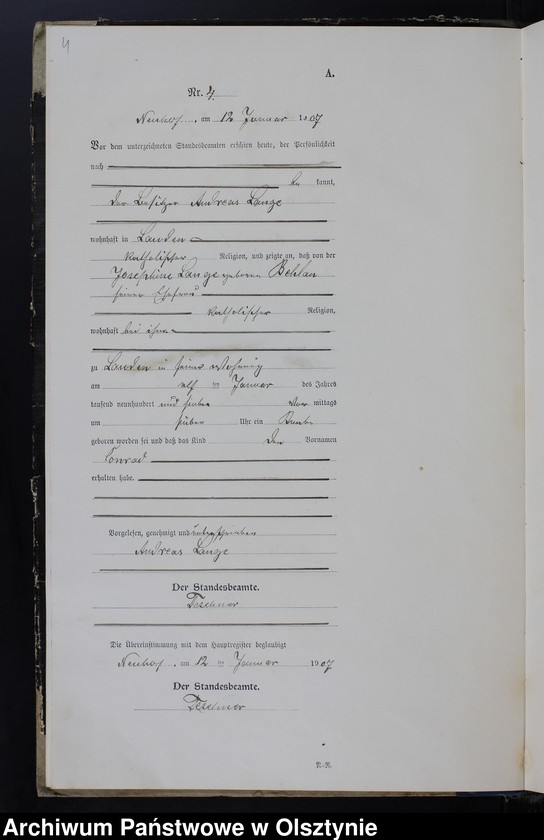 4
A.
Nr. 4.
Neuhof, am 12 Januar 1907
Vor dem unterzeichneten Standesbeamten erschien heute, der Persönlichkeit
nach
be kannt,
der Besitzer Andreas Lange
wohnhaft in Lauden
katholischer Religion, und zeigte an, daß von der
Josephine Lange geborene Behlau
seiner Ehefrau
katholischer Religion,
wohnhaft bei ihm
zu Lauden in seiner Wohnung
am elf ten Januar des Jahres
tausend neunhundert und sieben Vor mittags
um sieben Uhr ein Knabe
geboren worden sei und daß das Kind den Vornamen
Conrad
erhalten habe.
Vorgelesen, genehmigt und unterschrieben
Andreas Lange
Der Standesbeamte.
Teschner
Die Übereinstimmung mit dem Hauptregister beglaubigt
Neuhof, am 12 ten Januar 1907
Der Standesbeamte.
Teschner
N.-N.
Archiwum Państwowe w Olsztynie